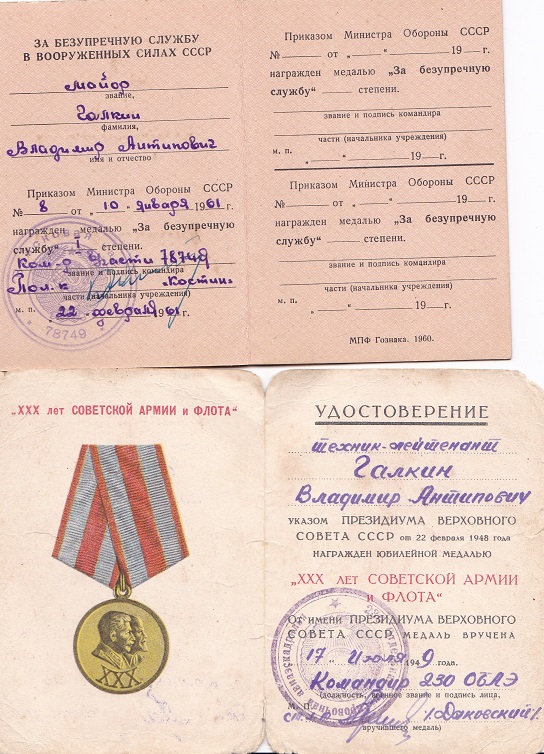 ЗА БЕЗУПРЕЧНУЮ СЛУЖБУ
В ВООРУЖЕННЫХ СИЛАХ СССР
майор
звание,
Галкин
фамилия,
Владимир Антипович
имя и отчество
Приказом Министра Обороны СССР
№ 8 от „10" января 1961 г.
награжден медалью „За безупречную
службу" I степени.
Ком-р части 78749
звание и подпись командира
Пол-к „Костин"
части (начальника учреждения)
м. п. 22 февраля 1961 г.
78749
Приказом Министра Обороны СССР
№ от „ " 19 г.
награжден медалью „За безупречную
службу" степени.
звание и подпись командира
части (начальника учреждения)
м. п. „ " 19 г.
Приказом Министра Обороны СССР
№ от „ " 19 г.
награжден медалью „За безупречную
службу" степени.
звание и подпись командира
части (начальника учреждения)
м. п. „ " 19 г.
МПФ Гознака. 1960.
„XXX лет СОВЕТСКОЙ АРМИИ и ФЛОТА"
XXX
УДОСТОВЕРЕНИЕ
техник-лейтенант
Галкин
Владимир Антипович
УКАЗОМ ПРЕЗИДИУМА ВЕРХОВНОГО
СОВЕТА СССР от 22 февраля 1948 года
НАГРАЖДЕН ЮБИЛЕЙНОЙ МЕДАЛЬЮ
„XXX ЛЕТ СОВЕТСКОЙ АРМИИ
и ФЛОТА"
От имени ПРЕЗИДИУМА ВЕРХОВНОГО
СОВЕТА СССР МЕДАЛЬ ВРУЧЕНА
17 июля 1949 года.
Командир 230 ОБАЭ
(должность, военное звание и подпись лица,
М. П.
/Дановский/
вручившего медаль)